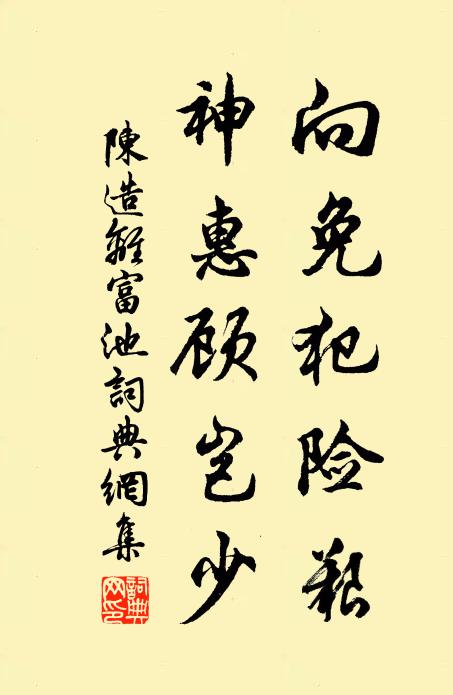 向免犯险艰
神惠顾岂少
陳造離富池詞典網集
詞典网印